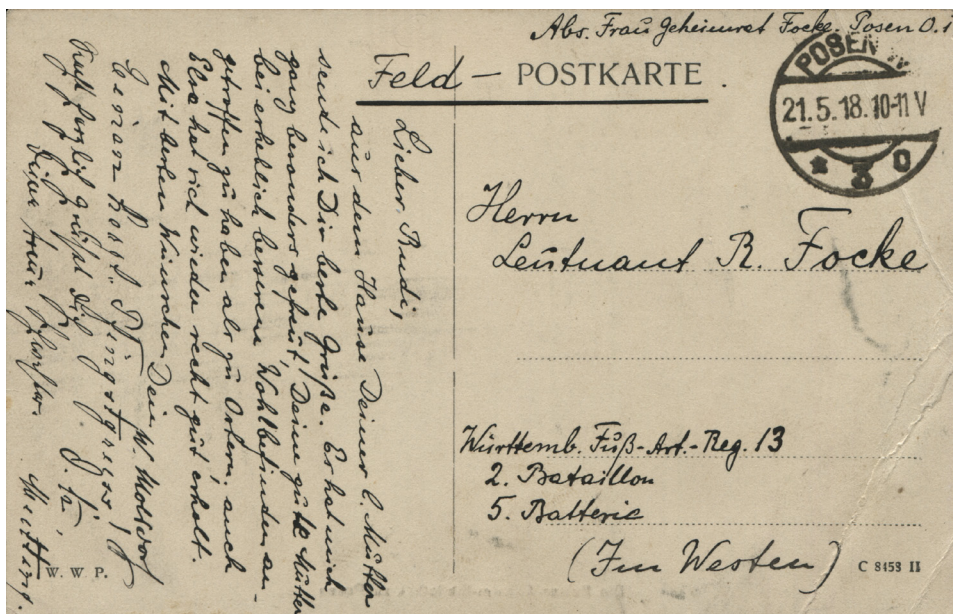 Abs. Frau Geheimrat Focke. Posen O.1
Feld - POSTKARTE
POSEN
21.5.18.10-11 V
* 3 O
Herrn
Leutnant R. Focke
Württemb. Fuß-Art.-Reg. 13
2. Bataillon
5. Batterie
(Im Westen)
C 8458 II
W. W. P.
Lieber Rudi,
aus dem Hause Deiner l. Mutter
sende ich Dir beste Grüße. Es hat mich
ganz besonders gefreut, Deine gute Mutter
bei erheblich besserem Wohlbefinden an-
getroffen zu haben als zu Ostern; auch
Elsa hat sich wieder recht gut erholt.
Mit besten Wünschen Dein
Pfingstgruss!
herzlich grüßt Dich
Deine treue